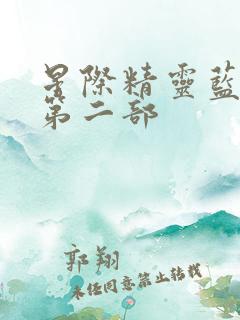 星際精靈藍
第二部
郭翔
未经同意禁止转载